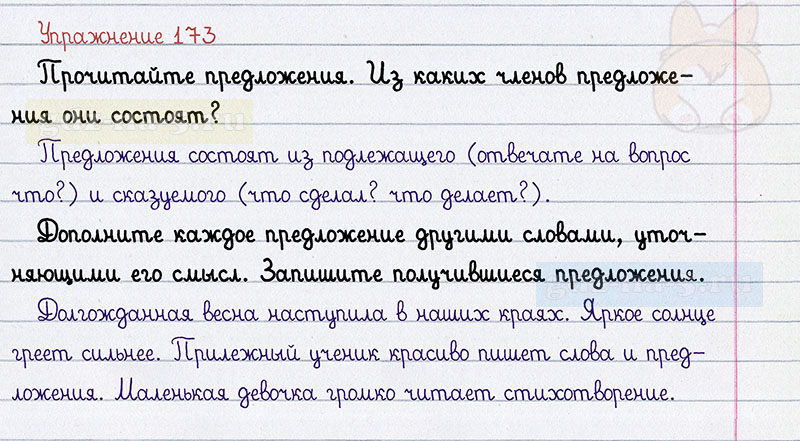 Упражнение 173
Прочитайте предложения. Из каких членов предложе-
ния они состоят?
Предложения состоят из подлежащего (отвечате на вопрос
что?) и сказуемого (что сделал? что делает?).
Дополните каждое предложение другими словами, уточ-
няющими его смысл. Запишите получившиеся предложения.
Долгожданная весна наступила в наших краях. Яркое солнце
греет сильнее. Прилежный ученик красиво пишет слова и пред-
ложения. Маленькая девочка громко читает стихотворение.